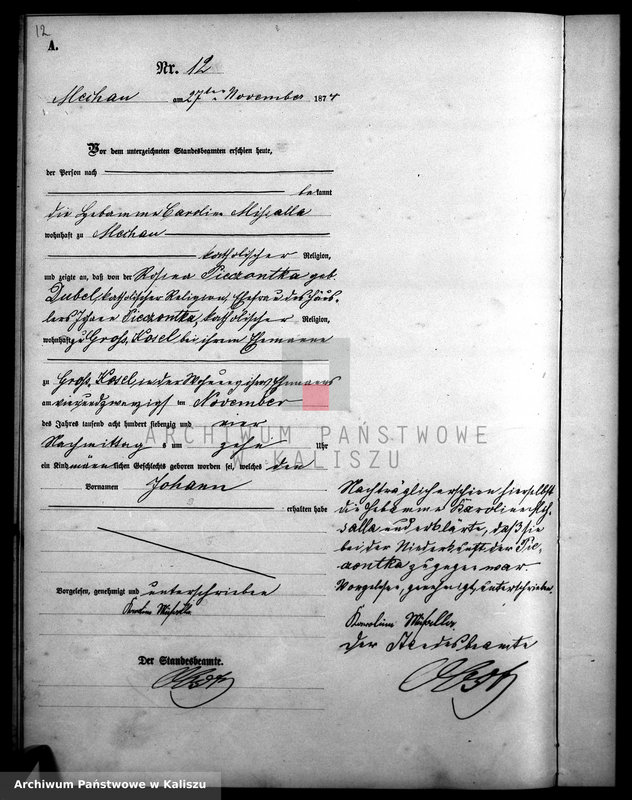 12
A.
Nr. 12
Mechau am 27ten November 1874
Vor dem unterzeichneten Standesbeamten erschien heute,
der Person nach
bekannt
die Hebamme Caroline Misialla
wohnhaft zu Mechau
katholischer Religion,
und zeigte an, daß von der Rosina Pieczontka geb.
Dubel, katholischer Religion, Ehefrau des Häus-
lers Igner Pieczontka, katholischer Religion,
wohnhaft zu Groß Kosel bei ihrem Ehemanne
zu Groß Kosel, in der Wohnung ihres Ehemanns
am vierundzwanzigsten November
des Jahres tausend acht hundert siebenzig und vier
Nachmittags um zehn Uhr
ein Kind männlichen Geschlechts geboren worden sei, welches den
Vornamen Johann
erhalten habe
Vorgelesen, genehmigt und unterschrieben
Karolina Misialla
Der Standesbeamte.
Nachträglich erschien hierselbst
die Hebamme Karoline Mis-
salla und erklärte, daß sie
bei der Niederkunft der Pie-
czontka zugegen war.
Vorgelesen, genehmigt, unterschrieben.
Karolina Misialla
Der Standesbeamte
ARCHIWUM PAŃSTWOWE
W KALISZU
Archiwum Państwowe w Kaliszu